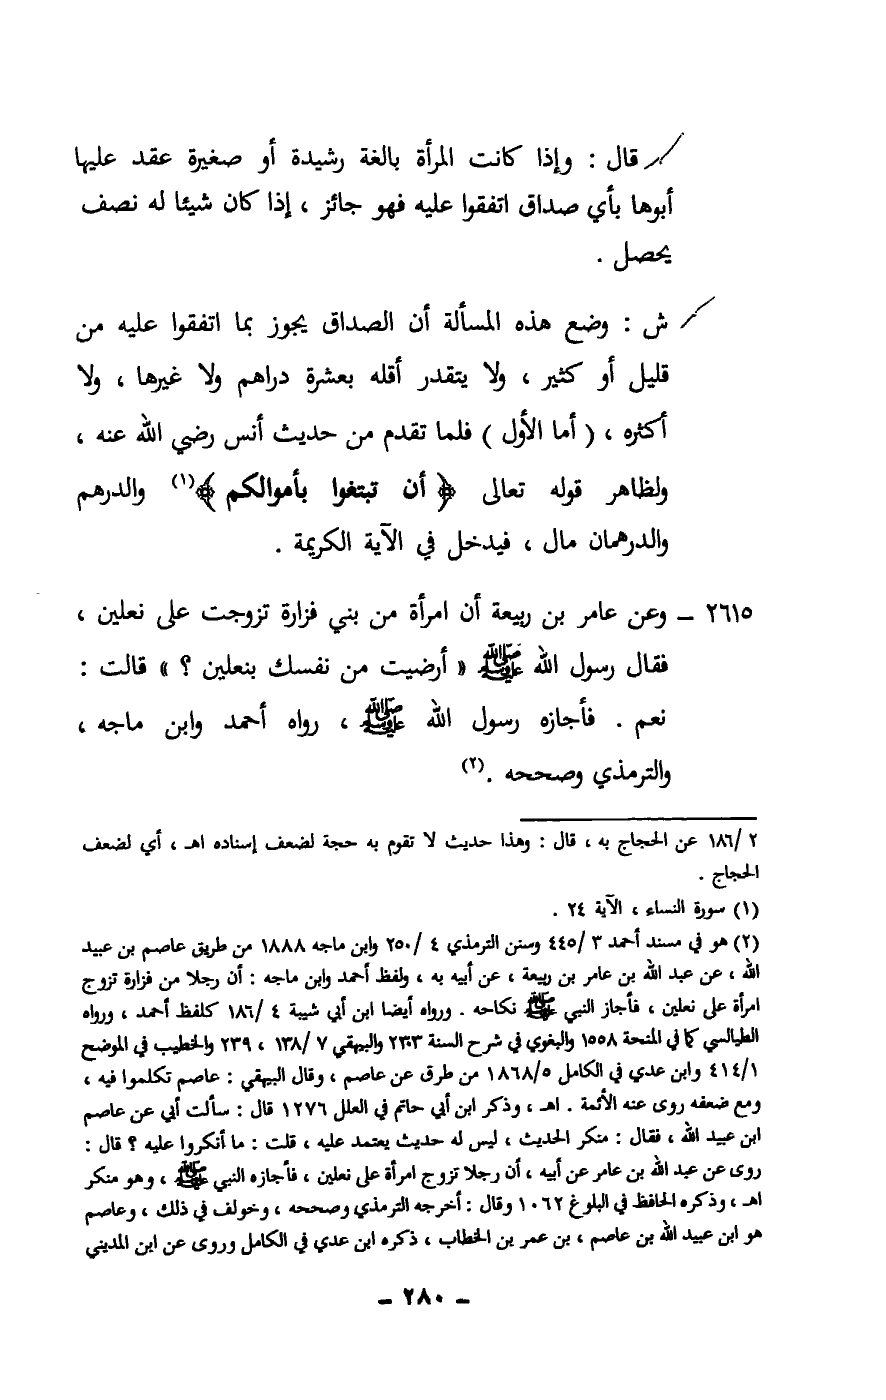 قال : وإذا كانت المرأة بالغة رشيدة أو صغيرة عقد عليها
أبوها بأي صداق اتفقوا عليه فهو جائز ، إذا كان شيئا له نصف
يحصل .
ش : وضع هذه المسألة أن الصداق يجوز بما اتفقوا عليه من
قليل أو كثير ، ولا يتقدر أقله بعشرة دراهم ولا غيرها ، ولا
أكثره ، ( أما الأول ) فلما تقدم من حديث أنس رضي الله عنه ،
ولظاهر قوله تعالى ﴿ أن تبتغوا بأموالكم ﴾(١) والدرهم
والدرهمان مال ، فيدخل في الآية الكريمة .
٢٦١٥ – وعن عامر بن ربيعة أن امرأة من بني فزارة تزوجت على نعلين ،
فقال رسول الله ﷺ « أرضيت من نفسك بنعلين ؟ » قالت :
نعم . فأجازه رسول الله ﷺ ، رواه أحمد وابن ماجه ،
والترمذي وصححه .(٢)
٢ /١٨٦ عن الحجاج به ، قال : وهذا حديث لا تقوم به حجة لضعف إسناده اهـ ، أي لضعف
الحجاج .
(١) سورة النساء ، الآية ٢٤ .
(٢) هو في مسند أحمد ٣ /٤٤٥ وسنن الترمذي ٤ /٢٥٠ وابن ماجه ١٨٨٨ من طريق عاصم بن عبيد
الله ، عن عبد الله بن عامر بن ربيعة ، عن أبيه به ، ولفظ أحمد وابن ماجه : أن رجلا من فزارة تزوج
امرأة على نعلين ، فأجاز النبي ﷺ نكاحه . ورواه أيضا ابن أبي شيبة ٤ /١٨٦ كلفظ أحمد ، ورواه
الطيالسي كما في المنحة ١٥٥٨ والبغوي في شرح السنة ٢٣٠٣ والبيهقي ٧ /١٣٨ ، ٢٣٩ والخطيب في الموضح
٤١٤/١ وابن عدي في الكامل ١٨٦٨/٥ من طرق عن عاصم ، وقال البيهقي : عاصم تكلموا فيه ،
ومع ضعفه روى عنه الأئمة . اهـ ، وذكر ابن أبي حاتم في العلل ١٢٧٦ قال : سألت أبي عن عاصم
ابن عبيد الله ، فقال : منكر الحديث ، ليس له حديث يعتمد عليه ، قلت : ما أنكروا عليه ؟ قال :
روى عن عبد الله بن عامر عن أبيه ، أن رجلا تزوج امرأة على نعلين ، فأجازه النبي ﷺ ، وهو منكر
اهـ ، وذكره الحافظ في البلوغ ١٠٦٢ وقال : أخرجه الترمذي وصححه ، وخولف في ذلك ، وعاصم
هو ابن عبيد الله بن عاصم ، بن عمر بن الخطاب ، ذكره ابن عدي في الكامل وروى عن ابن المديني
– ٢٨٠ –